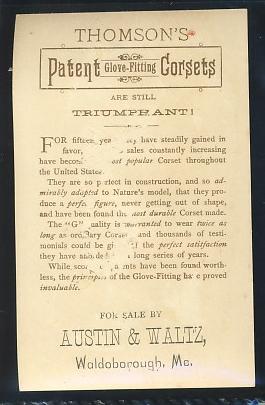 THOMSON'S
Patent Glove-Fitting Corsets
ARE STILL
TRIUMPHANT!
FOR fifteen yea ey have steadily gained in
favor, sales constantly increasing
have becom ost popular Corset throughout
the United States
They are so p rfect in construction, and so ad-
mirably adapted to Nature's model, that they pro-
duce a perfe figure, never getting out of shape,
and have been found the ost durable Corset made.
The "G" uality is warranted to wear twice as
long as ord ary Corse and thousands of testi-
monials could be gi f the perfect satisfaction
they have a d long series of years.
While sco ants have been found worth-
less, the principles of the Glove-Fitting ha e proved
invaluable.
FOR SALE BY
AUSTIN & WALTZ,
Waldoborough, Me.